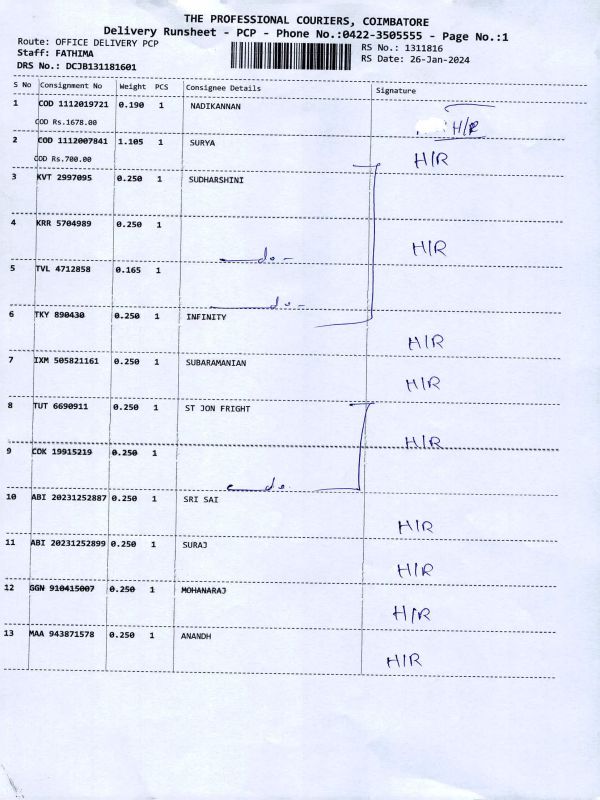 THE PROFESSIONAL COURIERS, COIMBATORE
Delivery Runsheet - PCP - Phone No.:0422-3505555 - Page No.:1
Route: OFFICE DELIVERY PCP RS No.: 1311816
Staff: FATHIMA RS Date: 26-Jan-2024
DRS No.: DCJB131181601
S No Consignment No Weight PCS Consignee Details Signature
1 COD 1112019721 0.190 1 NADIKANNAN
COD Rs.1678.00 H/R
2 COD 1112007841 1.105 1 SURYA
COD Rs.700.00 H/R
3 KVT 2997095 0.250 1 SUDHARSHINI
4 KRR 5704989 0.250 1
do - H/R
5 TVL 4712858 0.165 1
do -
6 TKY 890430 0.250 1 INFINITY
H/R
7 IXM 505821161 0.250 1 SUBARAMANIAN
H/R
8 TUT 6690911 0.250 1 ST JON FRIGHT
H/R
9 COK 19915219 0.250 1
do.
10 ABI 20231252887 0.250 1 SRI SAI
H/R
11 ABI 20231252899 0.250 1 SURAJ
H/R
12 GGN 910415007 0.250 1 MOHANARAJ
H/R
13 MAA 943871578 0.250 1 ANANDH
H/R